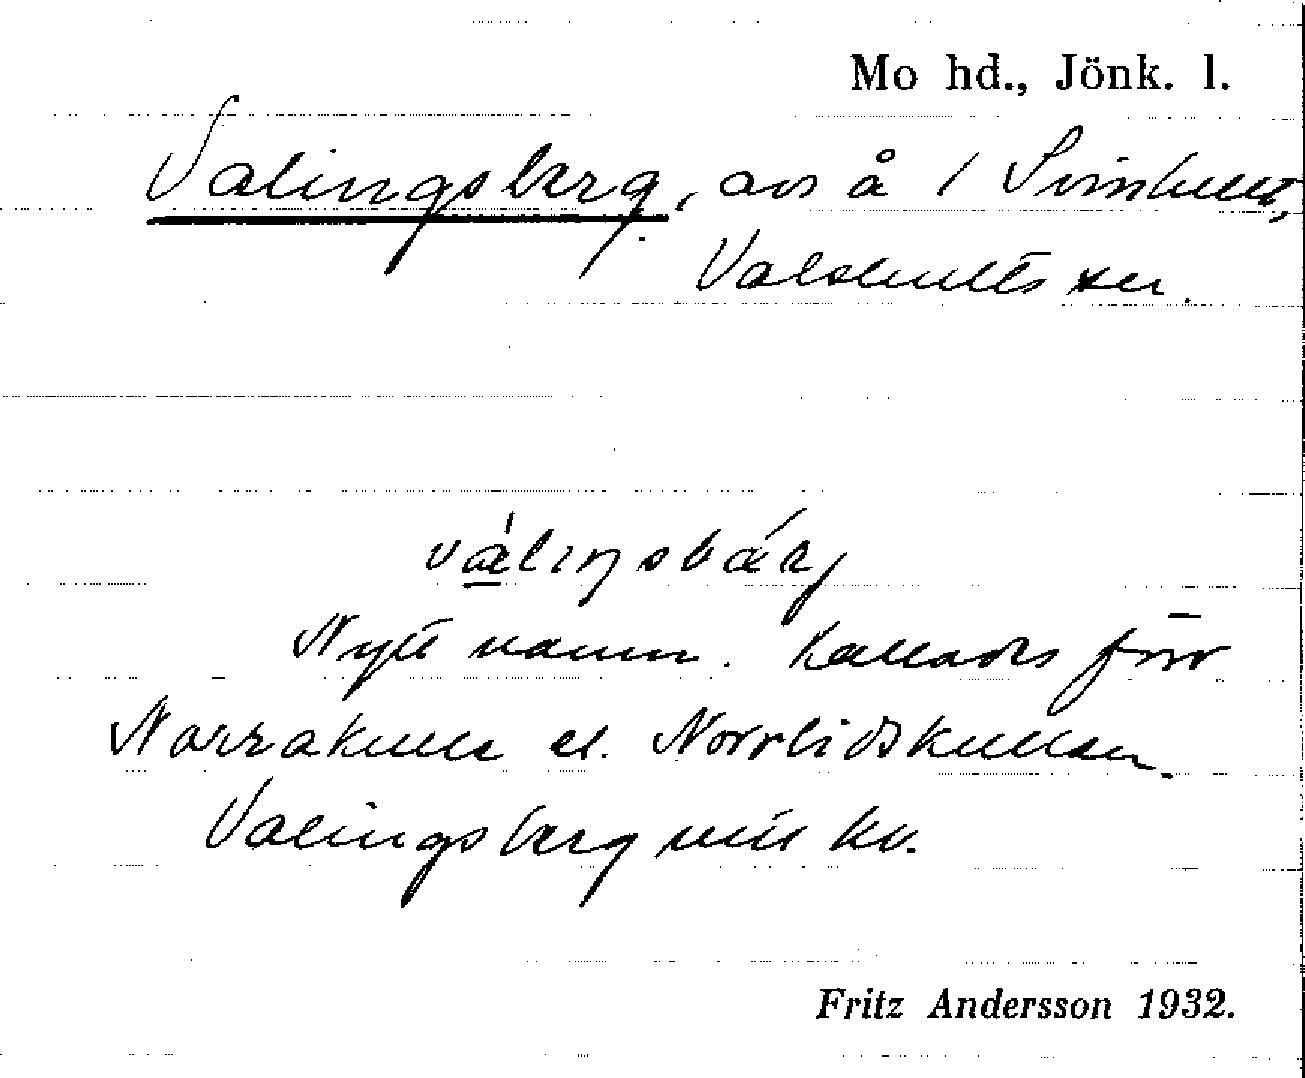 Mo hd., Jönk. l.
Valingsberg, avs å 1 Svinhult,
Valshults sn.
válıŋsbærj
Nytt namn. Kallades förr
Norrakulla el. Norrlidskullen.
Valingsberg
Fritz Andersson 1932.